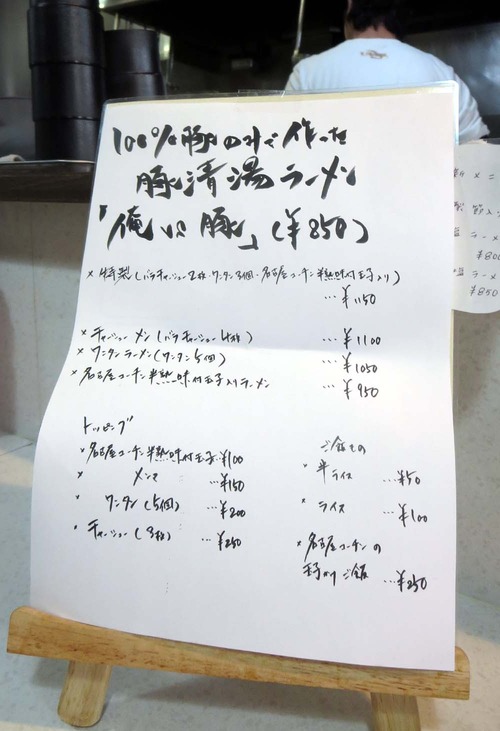 100%豚のみで作った
豚清湯ラーメン
「俺の豚」(¥850)
* 特製(バラチャーシュー2枚・ワンタン3個・名古屋コーチン半熟味付玉子入り)
…¥1150
* チャーシューメン(バラチャーシュー4枚) …¥1100
* ワンタンラーメン(ワンタン5個) …¥1050
* 名古屋コーチン半熟味付玉子入りラーメン …¥950
トッピング
* 名古屋コーチン半熟味付玉子…¥100
* メンマ …¥150
* ワンタン(5個) …¥200
* チャーシュー(3枚) …¥250
ご飯もの
* 半ライス …¥50
* ライス …¥100
* 名古屋コーチンの
玉子かけご飯 …¥250
メニ
¥800
¥850